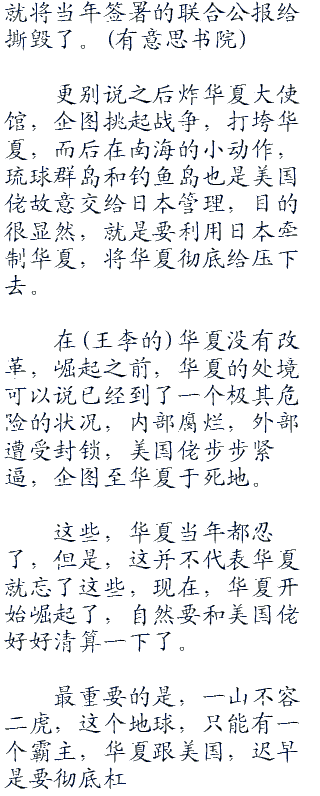 就将当年签署的联合公报给
撕毁了。(有意思书院)
更别说之后炸华夏大使
馆，企图挑起战争，打垮华
夏，而后在南海的小动作，
琉球群岛和钓鱼岛也是美国
佬故意交给日本管理，目的
很显然，就是要利用日本牵
制华夏，将华夏彻底给压下
去。
在(王李的)华夏没有改
革，崛起之前，华夏的处境
可以说已经到了一个极其危
险的状况，内部腐烂，外部
遭受封锁，美国佬步步紧
逼，企图至华夏于死地。
这些，华夏当年都忍
了，但是，这并不代表华夏
就忘了这些，现在，华夏开
始崛起了，自然要和美国佬
好好清算一下了。
最重要的是，一山不容
二虎，这个地球，只能有一
个霸主，华夏跟美国，迟早
是要彻底杠